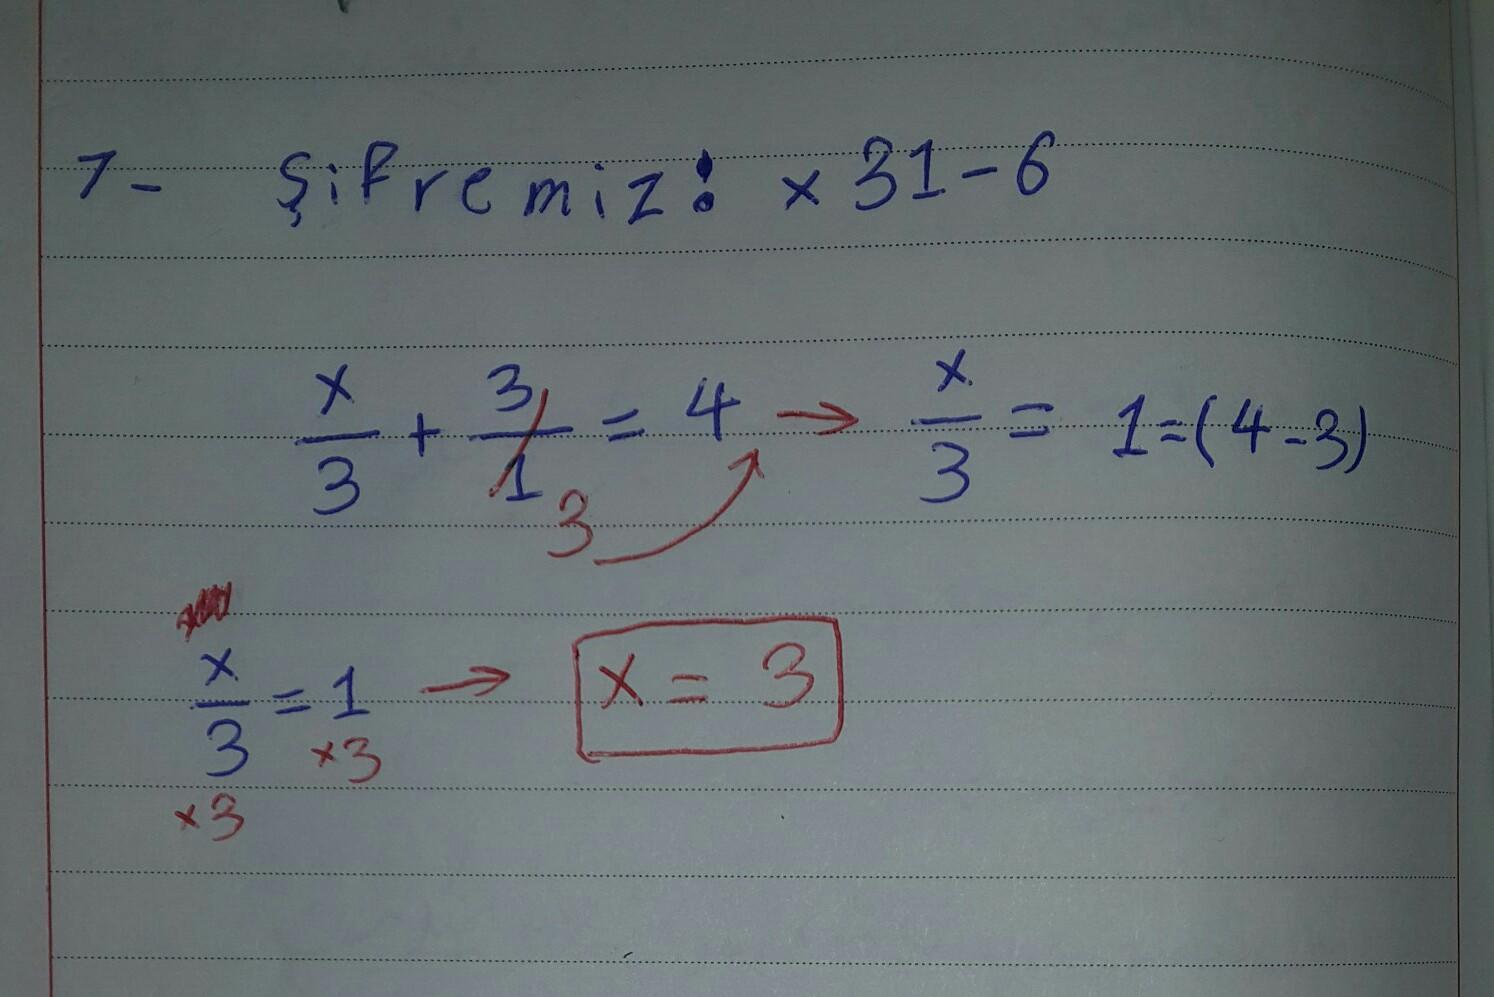 7- Şifremiz: x31-6
x/3 + 3/1 = 4 → x/3 = 1=(4-3)
3
x/3 = 1 → x = 3
x3
x3